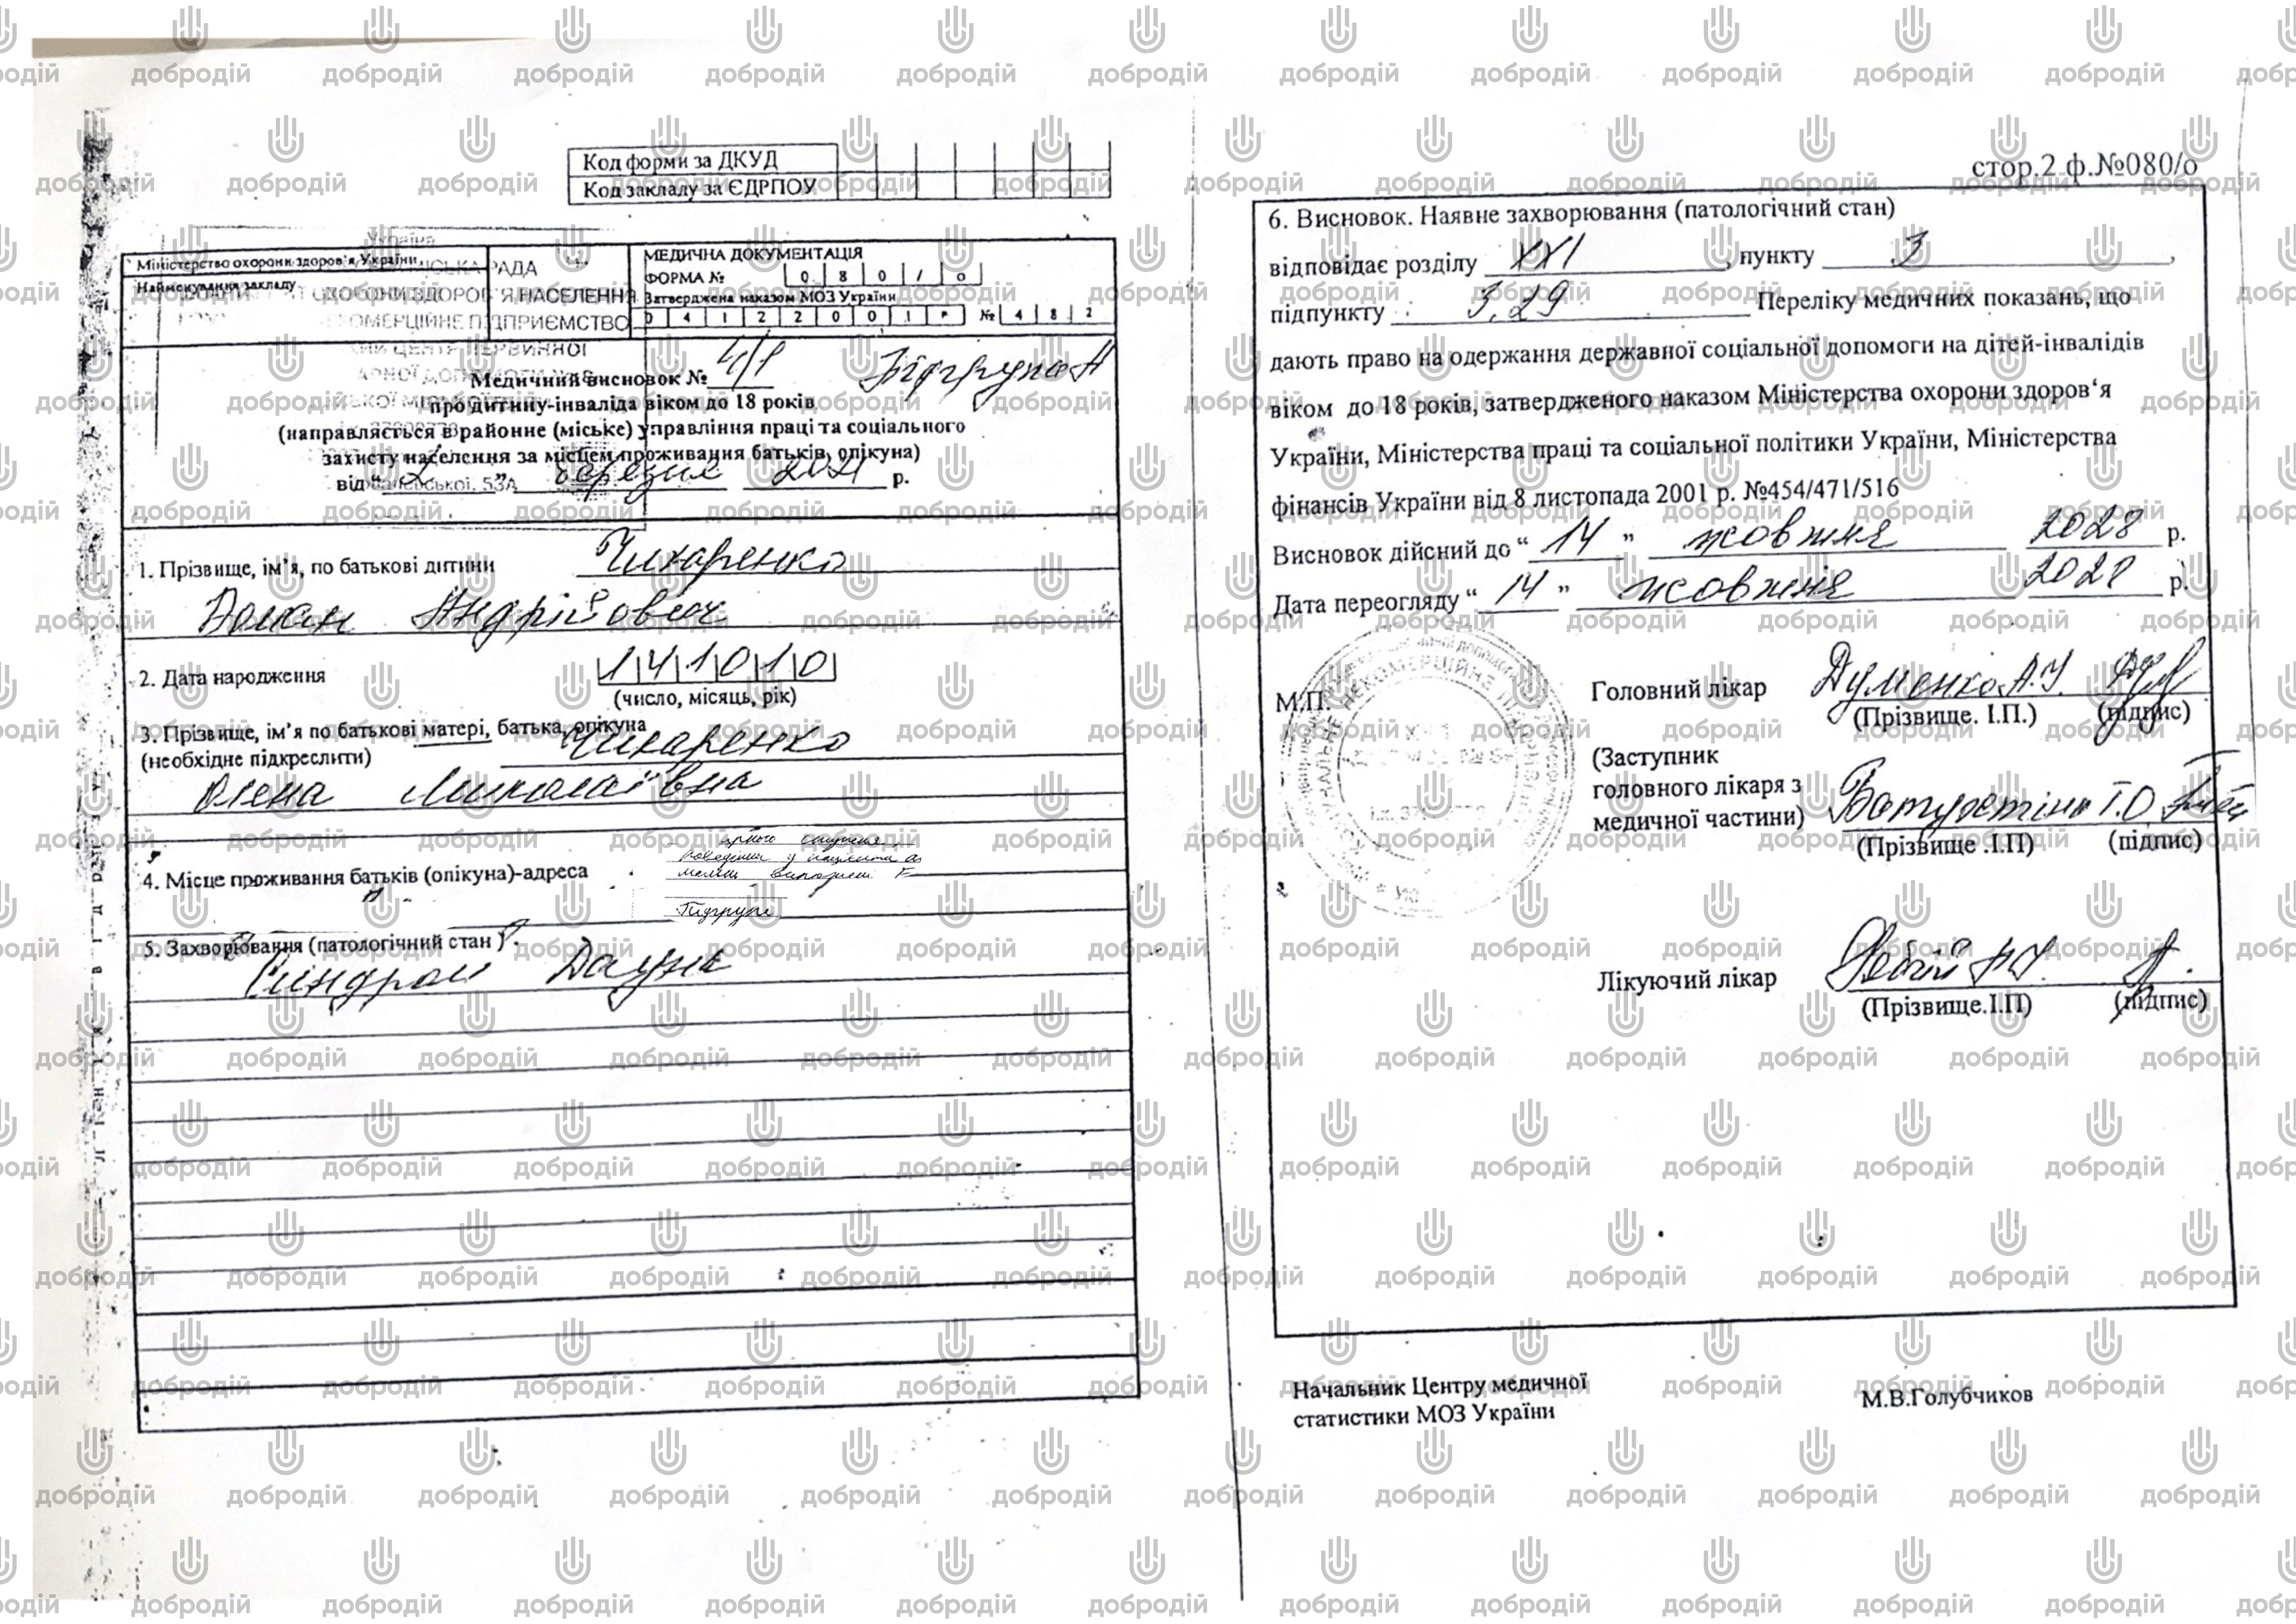 Код форми за ДКУД
Код закладу за ЄДРПОУ
Україна
Міністерство охорони здоров'я України
СЬКА РАДА
Найменування закладу
ОХОРОНИ ЗДОРОВ'Я НАСЕЛЕННЯ
КОМЕРЦІЙНЕ ПІДПРИЄМСТВО
ЦЕНТР ПЕРВИННОЇ
МЕДИЧНА ДОКУМЕНТАЦІЯ
ФОРМА № 0 8 0 / о
Затверджена наказом МОЗ України
0 4 1 2 2 0 0 1 р № 4 8 2
Медичний висновок № 4/1 Підгрупа А
про дитину-інваліда віком до 18 років
(направляється в районне (міське) управління праці та соціального
захисту населення за місцем проживання батьків, опікуна)
від “ 2 ” березня 2021 р.
1. Прізвище, ім'я, по батькові дитини Чихаренко
Андрійович
2. Дата народження 1 4 1 0 1 0
(число, місяць, рік)
3. Прізвище, ім'я по батькові матері, батька, опікуна Чихаренко
(необхідне підкреслити)
Олена Миколаївна
4. Місце проживання батьків (опікуна)-адреса
5. Захворювання (патологічний стан)
Синдром Дауна
стор.2 ф.№080/о
6. Висновок. Наявне захворювання (патологічний стан)
відповідає розділу XXI, пункту 3,
підпункту 3.29 Переліку медичних показань, що
дають право на одержання державної соціальної допомоги на дітей-інвалідів
віком до 18 років, затвердженого наказом Міністерства охорони здоров'я
України, Міністерства праці та соціальної політики України, Міністерства
фінансів України від 8 листопада 2001 р. №454/471/516
Висновок дійсний до “ 14 ” жовтня 2028 р.
Дата переогляду “ 14 ” жовтня 2028 р.
М.П.
Головний лікар Думенко А.І.
(Прізвище. І.П.) (підпис)
(Заступник
головного лікаря з
медичної частини) Т.О.
(Прізвище .І.П) (підпис)
Лікуючий лікар
(Прізвище.І.П) (підпис)
Начальник Центру медичної
статистики МОЗ України
М.В.Голубчиков
добродій